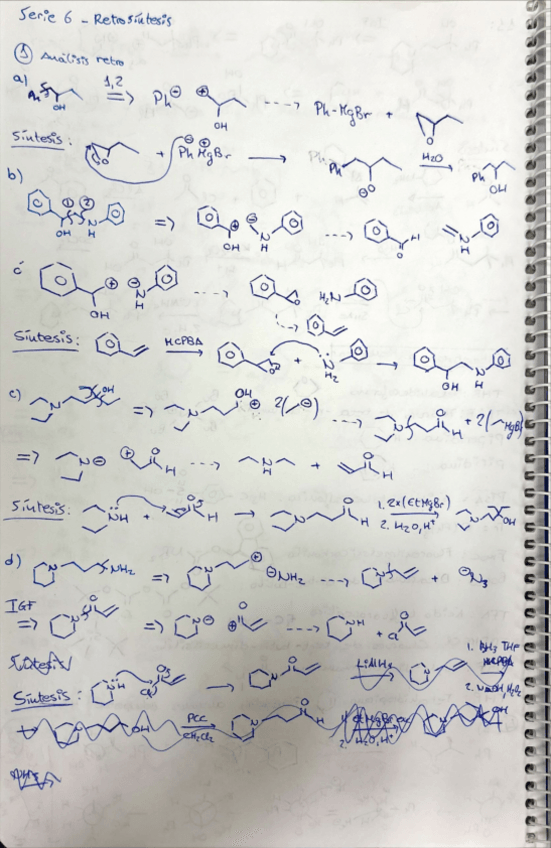 Serie 6 - Retrosíntesis
① Análisis retro
a) OH 1,2 ⇒ Ph⊖ ⊕ OH ----> Ph-MgBr + O
Síntesis: O + Ph⊖ ⊕MgBr → Ph O⊖ H2O → Ph OH
b) ① ② OH N H ⇒ ⊕ OH ⊖ N H ---> O H N H
c OH ⊕ ⊖ N H ----> O H2N
Síntesis: MCPBA → O + N H2 → OH N H
c) N OH ⇒ N OH ⊕ H 2( ⊖) ----> N O H + 2( MgBr)
⇒ N⊖ ⊕ O H ----> N H + O H
Síntesis: NH + O H → N O H 1. 2x(EtMgBr) 2. H2O, H+ N OH
d) N NH2 ⇒ N ⊕ ⊖NH2 ----> N + ⊖N3
IGF ⇒ N O ⇒ N⊖ ⊕ O ----> N H + Cl O
1. BH3 THF
Síntesis: N H Cl O → N O LiAlH4 N 2. NaOH, H2O2
N OH PCC CH2Cl2 N O H EtMgBr 2. H2O, H+ N OH